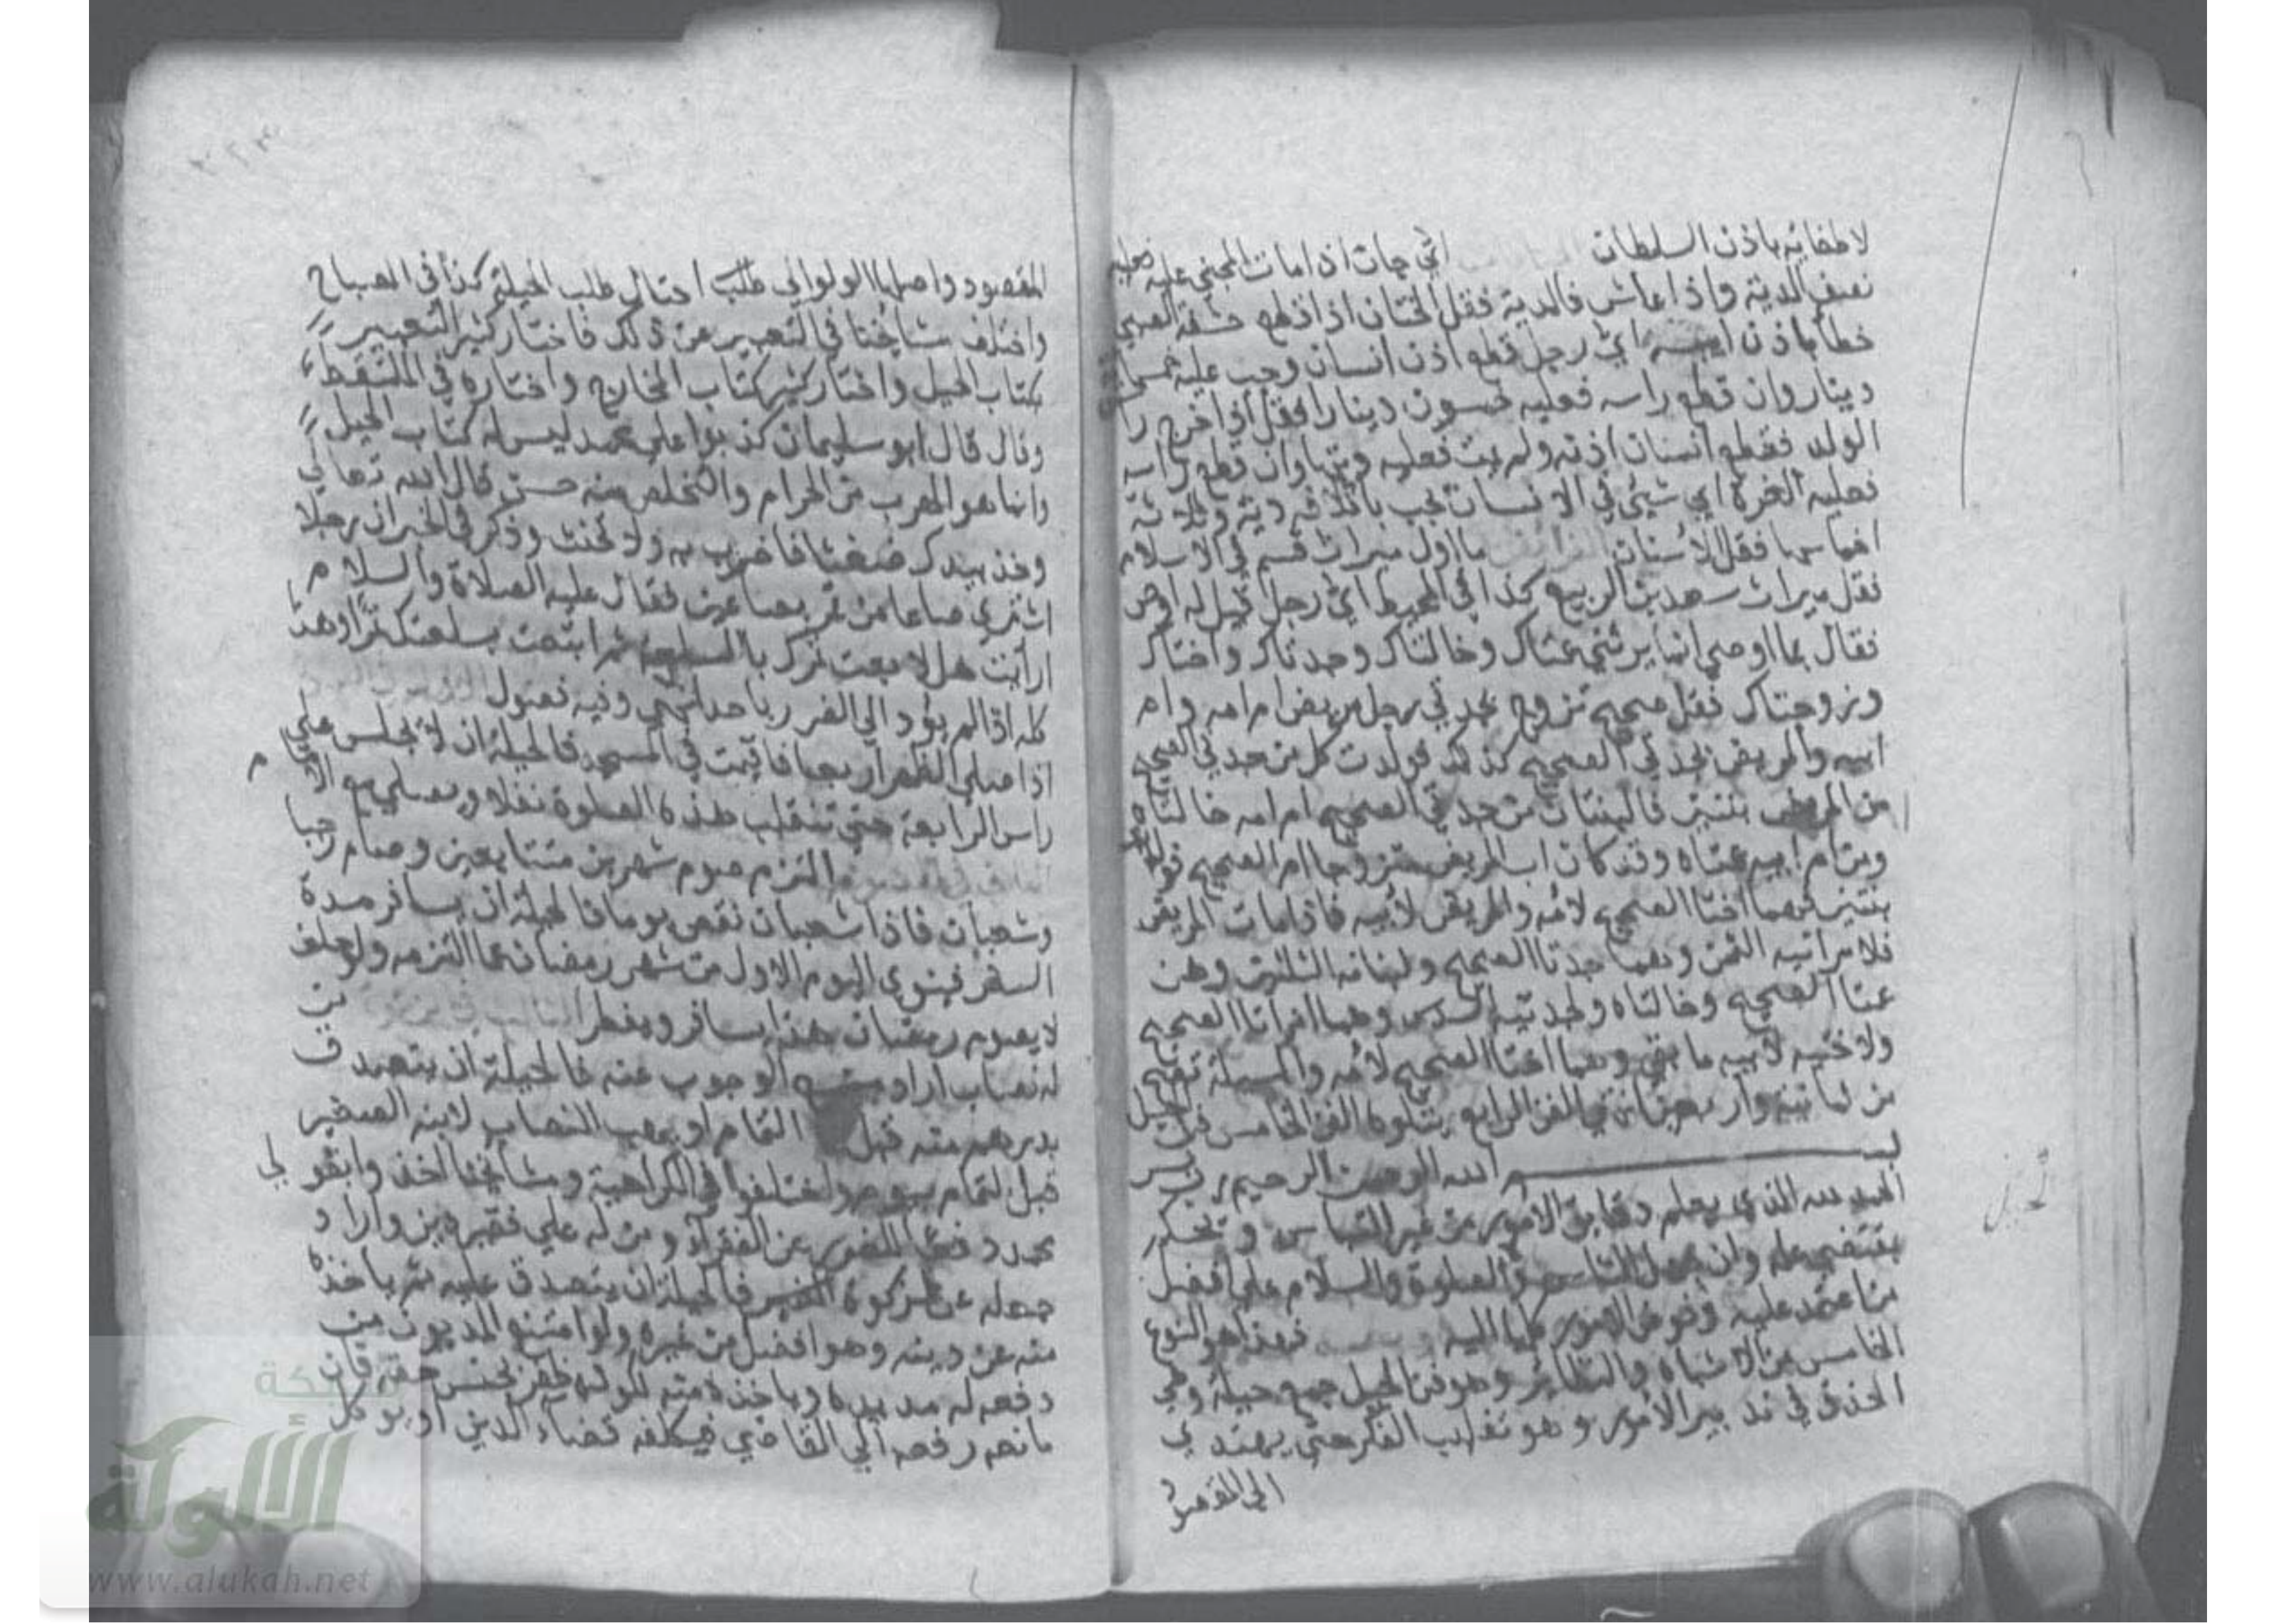 لاطفائه باذن السلطان اي جان اذا مات المجني عليه فعليه
نصف الدية واذا عاش فالدية فقل الختان اذا قطع حشفة الصبي
خطأ باذن ابيه اي رجل قطع اذن انسان وجب عليه خمسمائة
دينار وان قطع راسه فعليه خمسون دينارا فقل اذا اخرج را
الولد فقطع انسان اذنه ولم يمت فعليه ديتها وان قطع راسه
فعليه الغرة اي شيئ في الانسان تجب باتلافه دية وثلاثة
اخماسها فقل الاسنان ما اول ميراث قسم في الاسلام
فقل ميراث سعد بن الربيع كذا في المحيط اي رجل قيل له اوص
فقال بما اوصي انما يرثني عمتاك وخالتاك وجدتاك واختاك
وزوجتاك فقل صحيح تزوج بجدتي رجل مريض ام امه وام
ابيه والمريض بجدتي الصحيح كذلك فولدت كل من جدتي الصحيح
من المريض بنتين فالبنتان من جدتي الصحيح ام امه خالتاه
ومن ام ابيه عمتاه وقد كان اب المريض متزوجا ام الصحيح فولدت
بنتين فهما اختا الصحيح لامه والمريض لابيه فاذا مات المريض
فلامراتيه الثمن وهما جدتا الصحيح ولبناته الثلثين وهن
عمتا الصحيح وخالتاه ولجدتيه السدس وهما امراتا الصحيح
ولاختيه لابيه ما بقي وهما اختا الصحيح لامه والمسيلة تصح
من ثمانية واربعين انتهي الفن الرابع يتلوه الفن الخامس فن الحيل
بسم الله الرحمن الرحيم
الحمد لله الذي يعلم دقايق الامور من غير التباس وتحكم
بمقتضي علمه وان جهل الناس والصلوة والسلام علي افضل
من اعتمد عليه وفوض الامور كلها اليه فهذا هو النوع
الخامس من الاشباه والنظائر وهو فن الحيل جمع حيلة وهي
الحذق في تدبير الامور وهو تقليب الفكر حتي يهتدي
الي المقصود
الحيل
المقصود واصلها الواو احتال طلب الحيلة كذا في المصباح
واختلف مشايخنا في التعبير عن ذلك فاختار كثير التعبير
بكتاب الحيل واختار كثير كتاب المخارج واختاره في الملتقط
وقال قال ابو سليمان كذبوا علي محمد ليس له كتاب الحيل
وانما هو الهرب من الحرام والتخلص منه حسن قال الله تعالي
وخذ بيدك ضغثا فاضرب به ولا تحنث وذكر في الخبر ان رجلا
اشتري صاعا من تمر بصاعين فقال عليه الصلاة والسلام
ارأيت هل لا بعت تمرك بالسلعة ثم ابتعت بسلعتك تمرا وهذا
كله اذا لم يؤد الي الضرر باحد انتهي وفيه فصول
اذا صلي الظهر اربعا فاقيمت في المسجد فالحيلة ان لا يجلس علي
راس الرابعة حتي تنقلب هذه الصلوة نفلا ويصلي مع الامام
التزم صوم شهرين متتابعين وصام رجبا
وشعبان فاذا شعبان نقص يوما فالحيلة ان يسافر مدة
السفر فينوي اليوم الاول من شهر رمضان عما التزمه ولو حلف
لا يصوم رمضان هذا يسافر ويفطر من
له نصاب اراد الوجوب عنه فالحيلة ان يتصدق
بدرهم منه قبل التمام او يهب النصاب لابنه الصغير
قبل التمام بيوم واختلفوا في الكراهية ومشايخنا اخذوا بقول
محمد دفعا للضرر عن الفقراء ومن له علي فقير دين واراد
جعله عن زكوة العين فالحيلة ان يتصدق عليه ثم ياخذه
منه عن دينه وهو افضل من غيره ولو امتنع المديون من
دفعه له مد يده وياخذه منه لكونه ظفر بجنس حقه فان
مانعه رفعه الي القاضي فيكلفه قضاء الدين او يوكل
شبكة
الألوكة
www.alukah.net